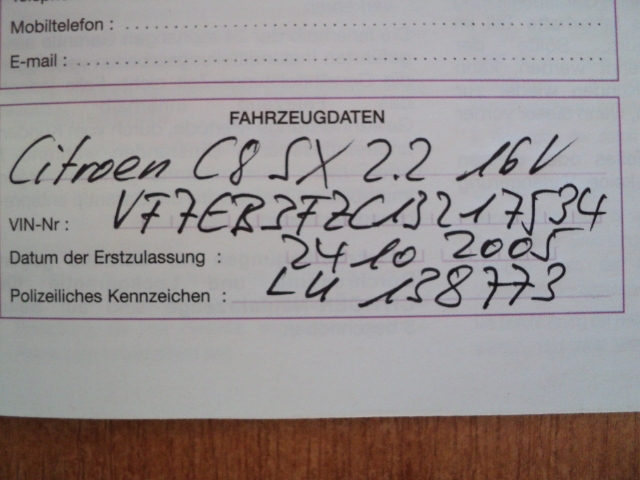 Mobiltelefon :
E-mail :
FAHRZEUGDATEN
Citroen C8 SX 2.2 16V
VIN-Nr : VF7EB3FZC13217534
Datum der Erstzulassung : 24 10 2005
Polizeiliches Kennzeichen : LU 138773